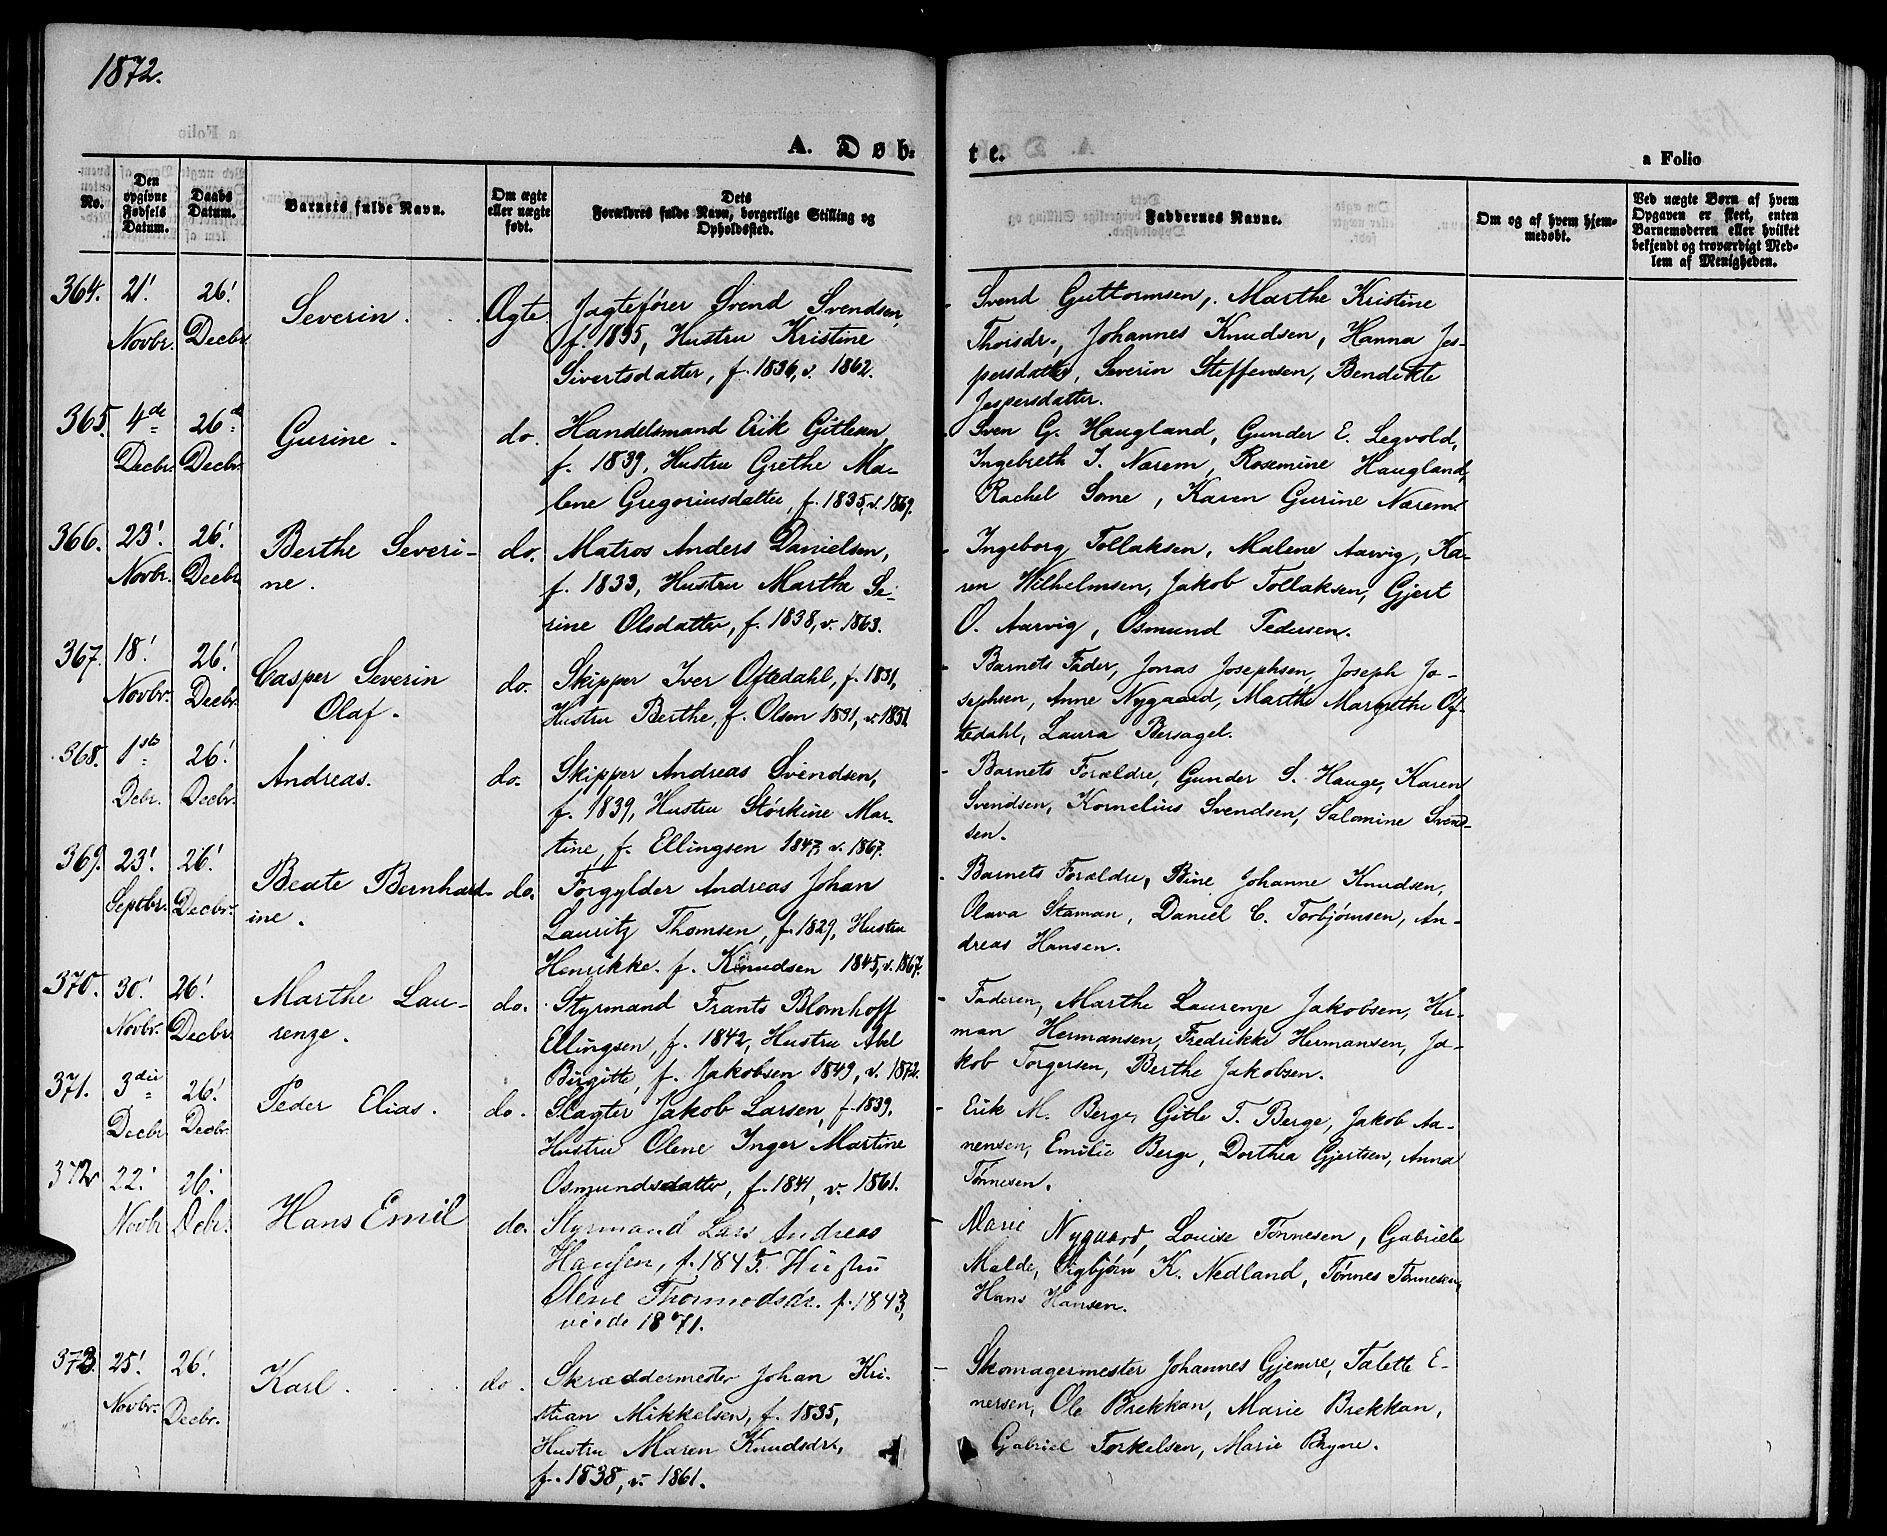 1872.
A. Døb-
te.
a Folio
No.
Den opgivne Fødsels Datum.
Daabs Datum.
Barnets fulde Navn.
Om ægte eller uægte født.
Dets Forældres fulde Navn, borgerlige Stilling og Opholdssted.
Faddernes Navne.
Om og af hvem hjemmedøbt.
Ved uægte Børn af hvem
Opgaven er skeet, enten
Barnemoderen eller hvilket
bekjendt og troværdigt Med-
lem af Menigheden.
364. 21! Novbr. 26! Decbr. Severin. Ægte
Jagtefører Svend Svendsen,
f. 1835, Hustru Kristine
Sivertsdatter, f. 1836, v. 1862.
Svend Guttormsen, Marthe Kristine
Thoisdr., Johannes Knudsen, Hanna Jes-
persdatter, Severin Steffensen, Bendikte
Jespersdatter.
365. 4de Decbr. 26de Decbr. Gurine. do.
Handelsmand Erik Gitlesen,
f. 1839, Hustru Grethe Ma-
lene Gregoriusdatter, f. 1835, v. 1869.
Sven G. Haugland, Gunder E. Legvold,
Ingebreth I. Narem, Rosemine Haugland,
Rachel Some, Karen Gurine Narem
366. 23! Novbr. 26! Decbr. Berthe Severi-
ne. do.
Matros Anders Danielsen,
f. 1833, Hustru Marthe Se-
rine Olsdatter, f. 1838, v. 1863.
Ingeborg Tollaksen, Malene Aarvig, Ka-
ren Wilhelmsen, Jakob Tollaksen, Gjert
O. Aarvig, Osmund Pedersen.
367. 18! Novbr. 26! Decbr. Casper Severin
Olaf. do.
Skipper Iver Oftedahl, f. 1831,
Hustru Berthe, f. Olsen 1831, v. 1851
Barnets Fader, Jonas Josephsen, Joseph Jo-
sephsen, Anne Nygaard, Marthe Margrethe Of-
tedahl, Laura Bersagel.
368. 1ste Debr. 26! Decbr. Andreas. do.
Skipper Andreas Svendsen,
f. 1839, Hustru Størkine Mar-
tine, f. Ellingsen 1847, v. 1867.
Barnets Forældre, Gunder S. Hauge, Karen
Svendsen, Kornelius Svendsen, Salomine Svend-
sen.
369. 23! Septbr. 26! Decbr. Beate Bernhard-
ine. do.
Forgylder Andreas Johan
Lauritz Thomsen, f. 1829, Hustru
Henrikke f. Knudsen 1845, v. 1867.
Barnets Forældre, Bine Johanne Knudsen,
Olava Staman, Daniel C. Torbjørnsen, An-
dreas Hansen.
370. 30! Novbr. 26! Decbr. Marthe Lau-
renze. do.
Styrmand Frants Blomhoff
Ellingsen, f. 1842, Hustru Abel
Birgitte, f. Jakobsen 1849, v. 1872.
Faderen, Marthe Laurenze Jakobsen, Her-
man Hermansen, Fredrikke Hermansen, Ja-
kob Torgersen, Berthe Jakobsen.
371. 3die Decbr. 26! Decbr. Peder Elias. do.
Slagter Jakob Larsen, f. 1839.
Hustru Olene Inger Martine
Osmundsdatter, f. 1841, v. 1861.
Erik M. Berge, Gitle T. Berge, Jakob Aa-
nensen, Emilie Berge, Dorthea Gjertsen, Anna
Tønnesen.
372 22! Novbr 26! Debr. Hans Emil do.
Styrmand Lars Andreas
Hansen, f. 1845. Hustru
Olene Thormodsdr. f. 1843,
viede 1871.
Marie Nygaard, Louise Tønnesen, Gabriele
Malde, Sigbjørn K. Nedland, Tønnes Tønnesen,
Hans Hansen.
373. 25! Novbr. 26! Decbr. Karl. do.
Skræddermester Johan Kri-
stian Mikkelsen, f. 1835,
Hustru Maren Knudsdr.,
f. 1838, v. 1861.
Skomagermester Johannes Gjemre, Talette E-
nersen, Ole Brekkan, Marie Brekkan,
Gabriel Torkelsen, Marie Bryne.